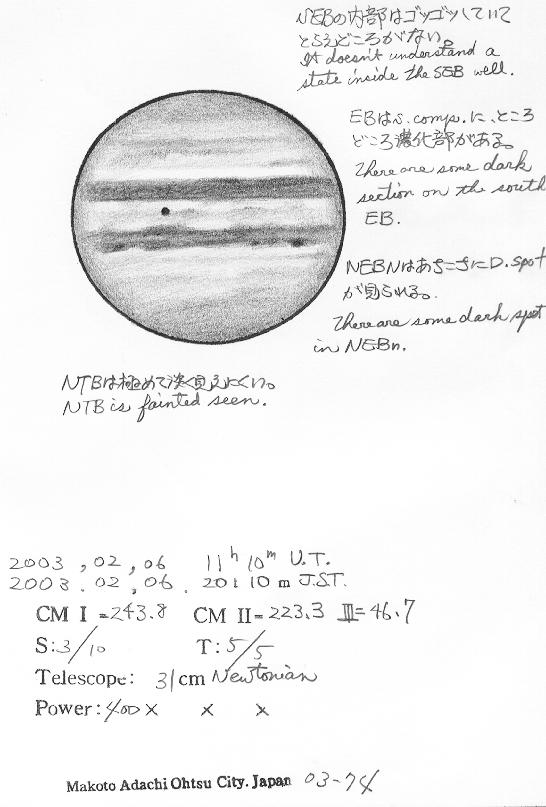 NEBの内部はゴツゴツしていて
とらえどころがない。
It doesn't understand a
state inside the SEB well.
EBはS. comp.に、ところ
どころ濃化部がある。
There are some dark
section on the south
EB.
NEBNはあちこちにD. spot
が見られる。
There are some dark spot
in NEBn.
NTBは極めて淡く見えにくい。
NTB is fainted seen.
2003 , 02 , 06 11h 10m U.T.
2003 . 02 , 06 . 20 10 m J.S.T.
CM I =243.8 CM II=223.3 III=46.7
S:3/10 T:5/5
Telescope: 31cm Newtonian
Power:400× × ×
Makoto Adachi Ohtsu City. Japan 03-74